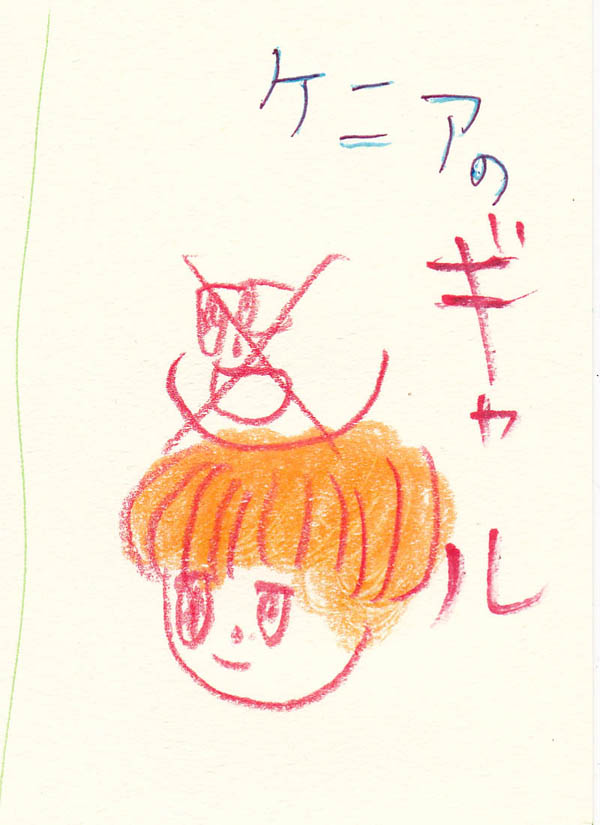 ケニアの
ギャル